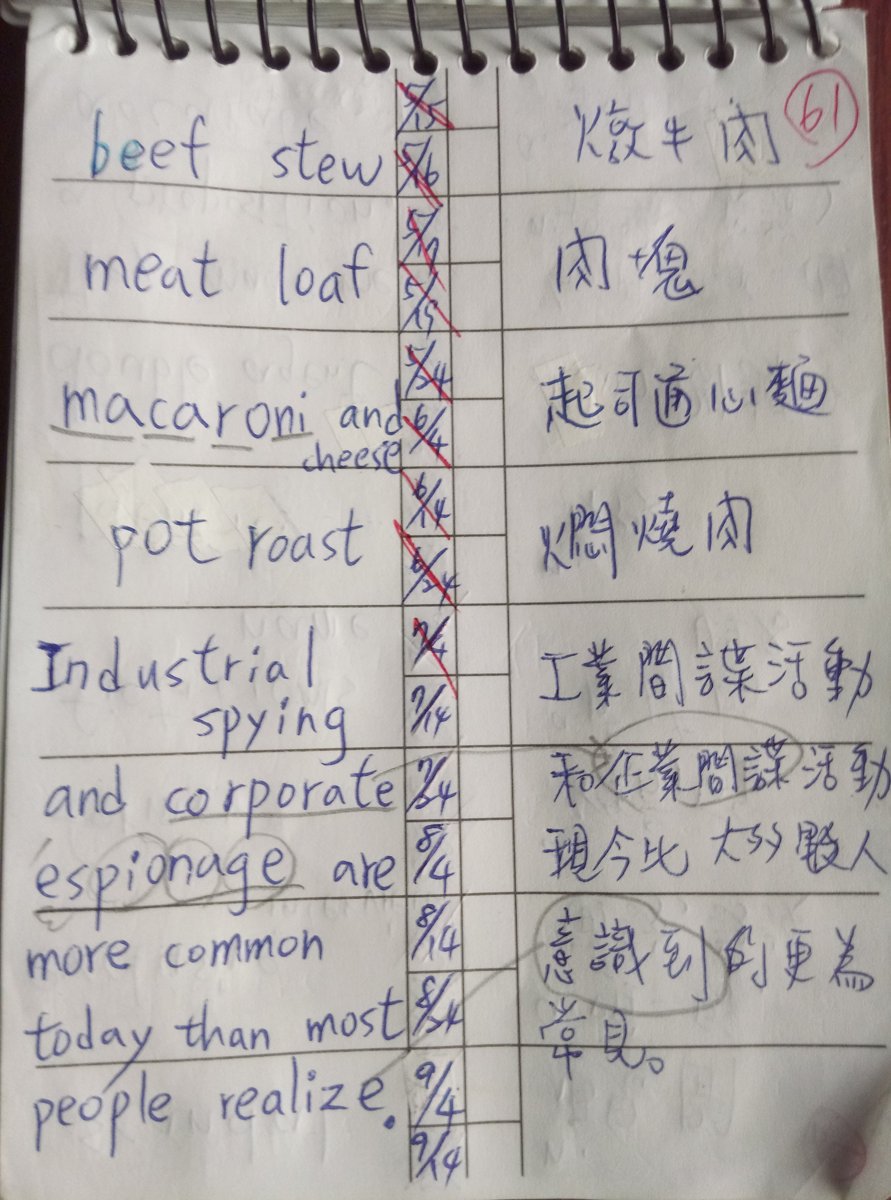 61
beef stew 5/15 燉牛肉
5/16
meat loaf 5/17 肉塊
5/19
macaroni and 5/24 起司通心麵
cheese 6/4
6/14
pot roast 6/24 燜燒肉
Industrial 7/4 工業間諜活動
spying 7/14
and corporate 7/24 和企業間諜活動
espionage are 8/4 現今比大多數人
more common 8/14 意識到的更為
today than most 8/24 常見。
people realize. 9/4
9/14